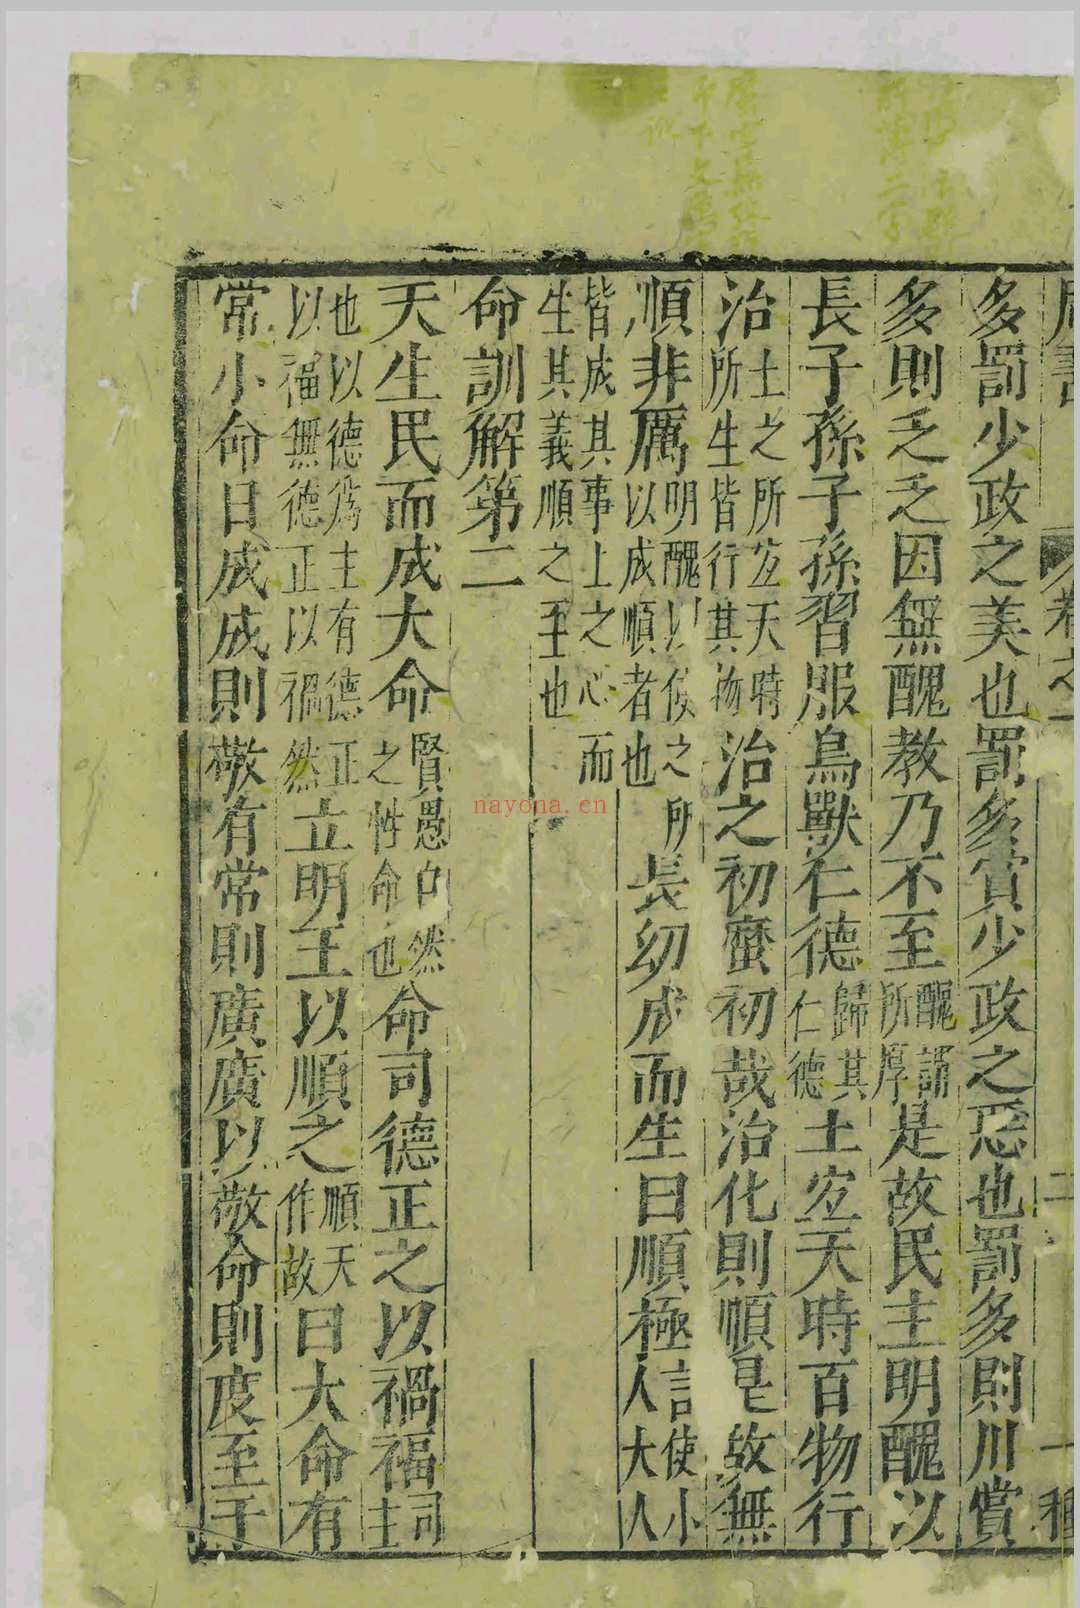 周書 卷之一 二
多罰少政之美也罰多賞少政之惡也罰多則川賞
多則乏乏因無醜教乃不至醜謂所厚是故民主明醜以
長子孫子孫習服鳥獸仁德歸其仁德土宜天時百物行
治土之所宜天時所生皆行其物治之初𠫤初哉治化則順是故無
順非厲明醜以侯之所以成順者也長幼成而生曰順極言使小人大人
皆成其事上之心而生其義順之至也
命訓解第二
天生民而成大命賢愚自然之性命也命司德正之以禍福司主
也以德為主有德正以福無德正以禍然立明王以順之順天作故曰大命有
常小命日成成則敬有常則廣廣以敬命則度至于
nayona.cn